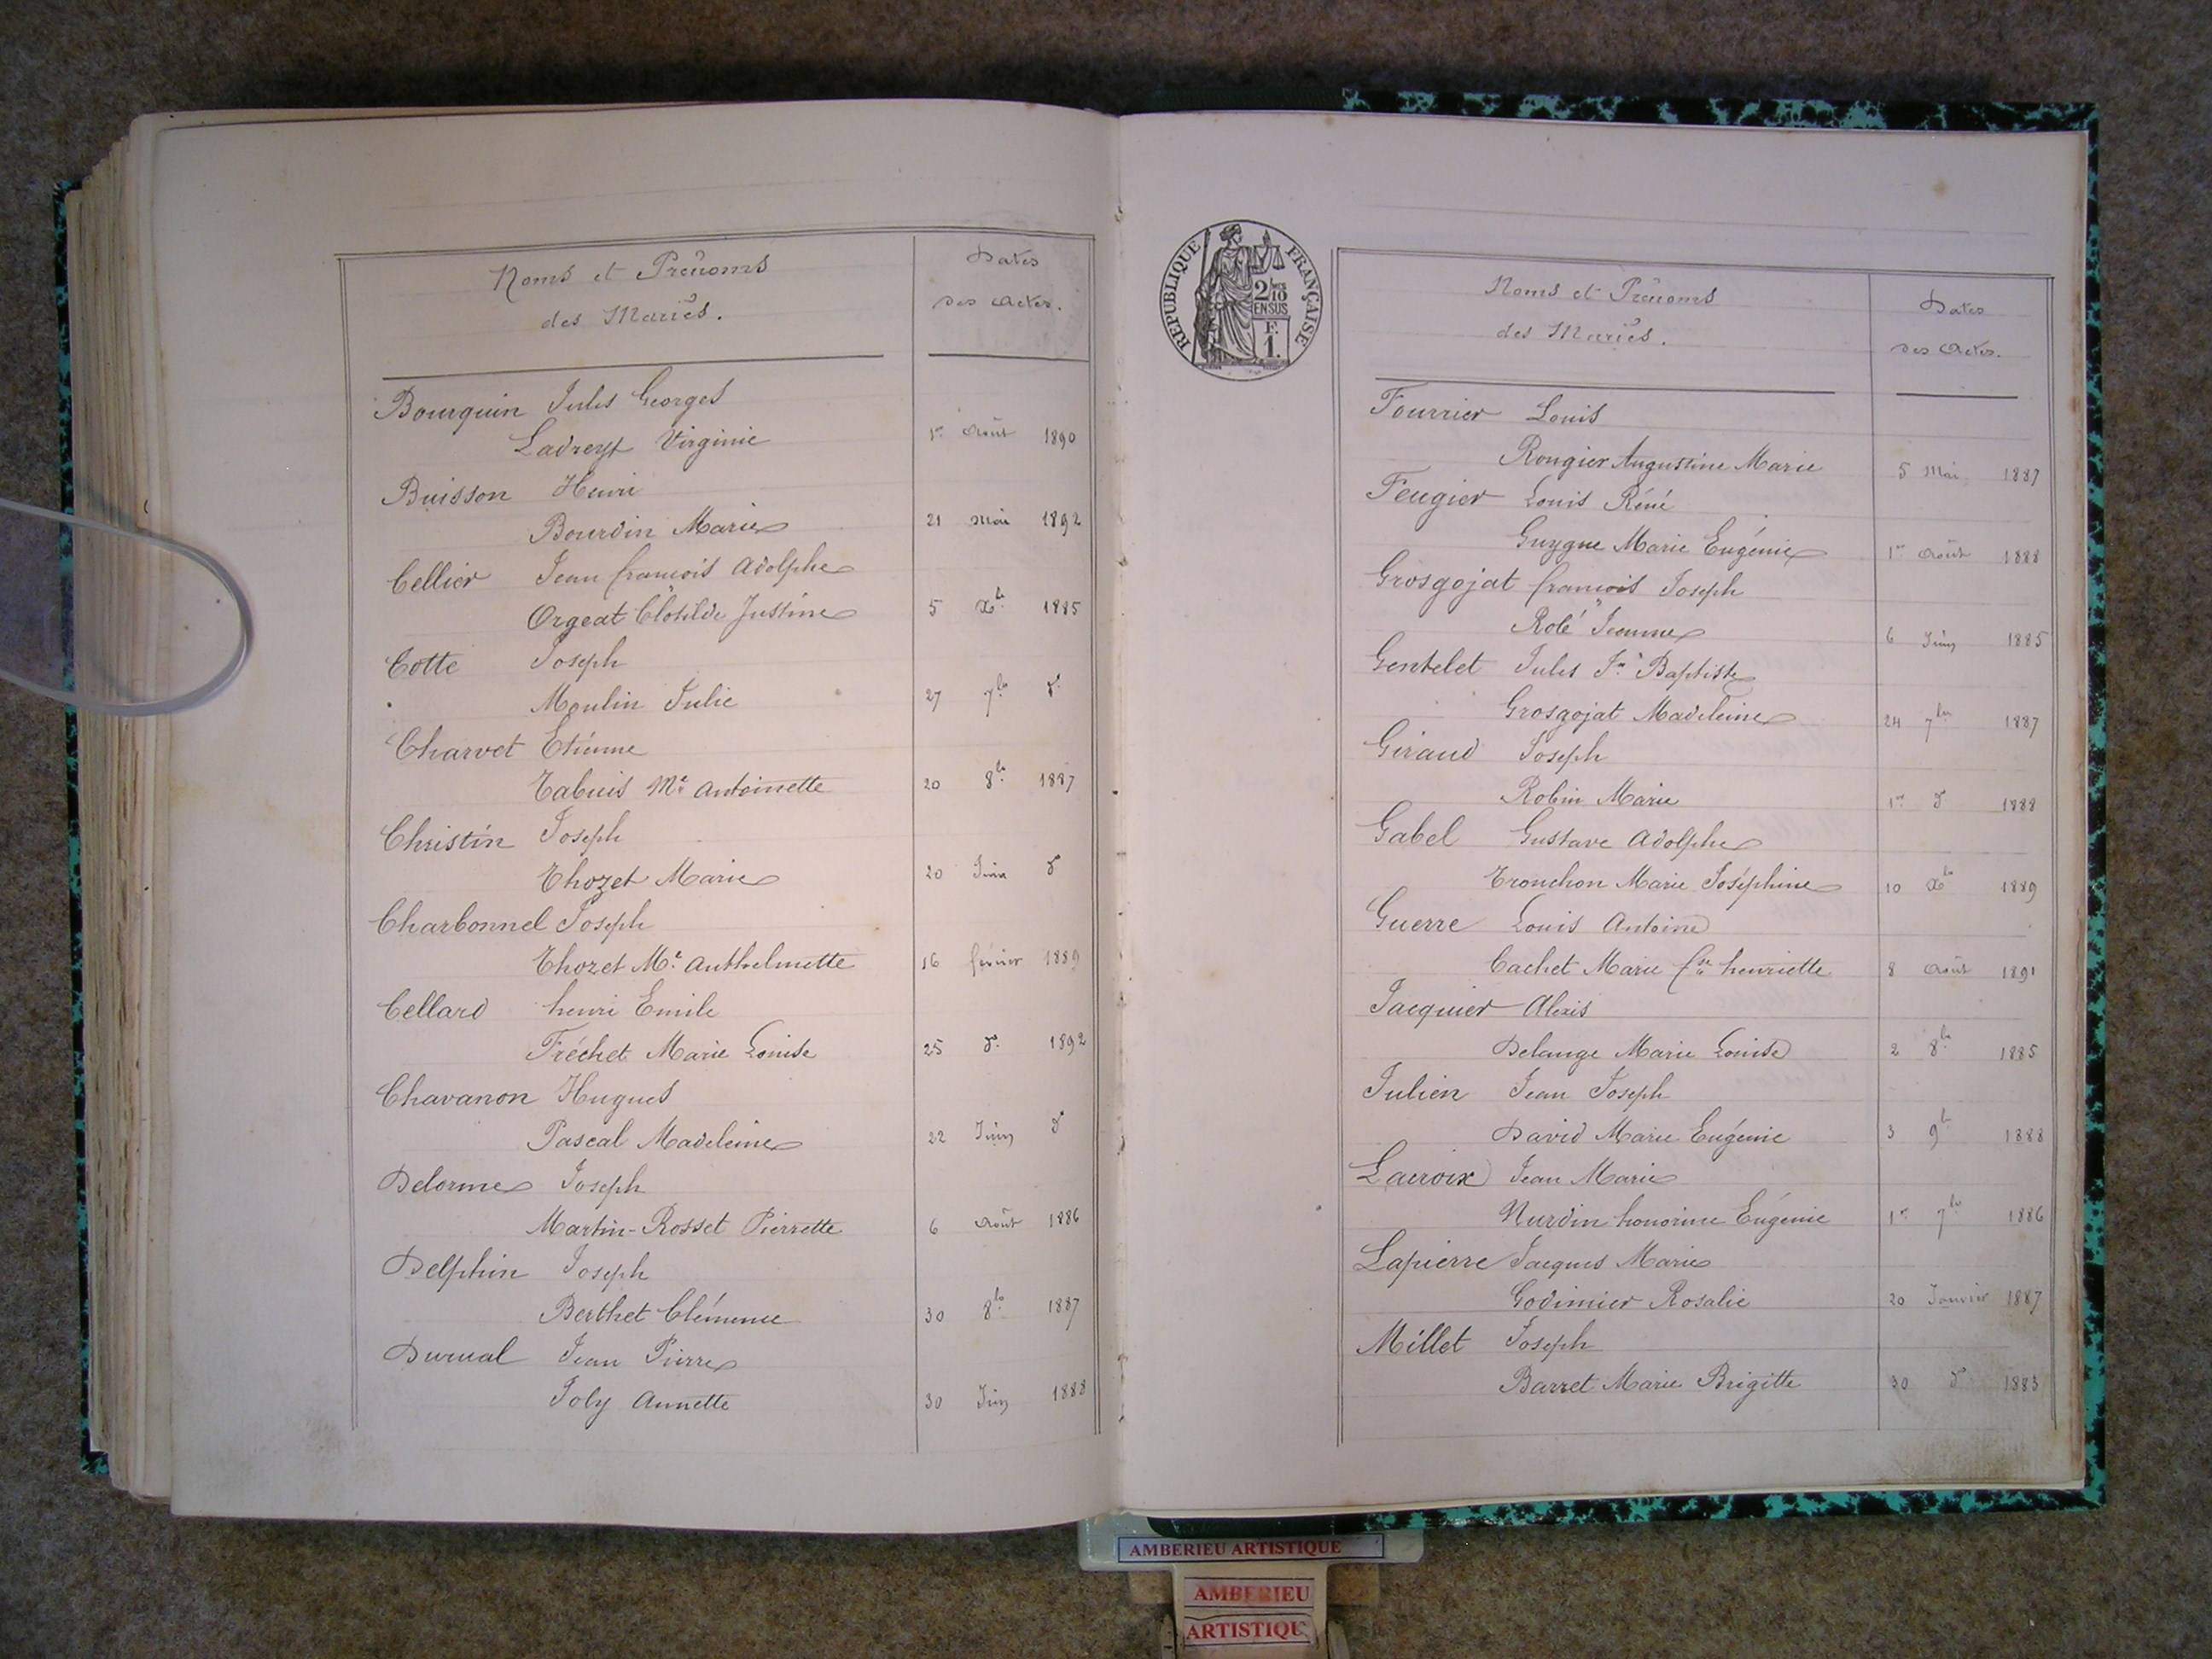 Noms et Prénoms
des Mariés.
Dates
des Actes.
Bourguin Jules Georges
Ladreyt Virginie 1er Août 1890
Buisson Henri
Bourdin Marie 21 Mai 1892
Cellier Jean françois Adolphe
Orgeat Clotilde Justine 5 Xbre 1885
Cotte Joseph
Moulin Julie 27 7bre do
Charvet Etienne
Tabuis Mie Antoinette 20 8bre 1887
Christin Joseph
Thozet Marie 20 Juin do
Charbonnel Joseph
Thozet Mie Anthelmette 16 février 1889
Cellard henri Emile
Fréchet Marie Louise 25 do 1892
Chavanon Hugues
Pascal Madeleine 22 Juin do
Delorme Joseph
Martin-Rosset Pierrette 6 Août 1886
Delphin Joseph
Berthet Clémence 30 8bre 1887
Durual Jean Pierre
Joly Annette 30 Juin 1888
REPUBLIQUE FRANÇAISE
2/10
EN SUS
F.
1.
Noms et Prénoms
des Mariés.
Dates
des Actes.
Fourrier Louis
Rougier Augustine Marie 5 Mai 1887
Feugier Louis Réné
Guygue Marie Eugénie 1er Août 1888
Grosgojat françois Joseph
Robé Jeanne 6 Juin 1885
Gentelet Jules Jn Baptiste
Grosgojat Madeleine 24 7bre 1887
Giraud Joseph
Robin Marie 1er do 1888
Gabel Gustave Adolphe
Tronchon Marie Joséphine 10 Xbre 1889
Guerre Louis Antoine
Cachet Marie fse henriette 8 Août 1891
Jacquier Alexis
Delange Marie Louise 2 8bre 1885
Julien Jean Joseph
David Marie Eugénie 3 9bre 1888
Lacroix Jean Marie
Nurdin honorine Eugénie 1er 7bre 1886
Lapierre Jacques Marie
Godimier Rosalie 20 Janvier 1887
Millet Joseph
Barret Marie Brigitte 30 do 1883
AMBERIEU ARTISTIQUE
AMBERIEU
ARTISTIQU